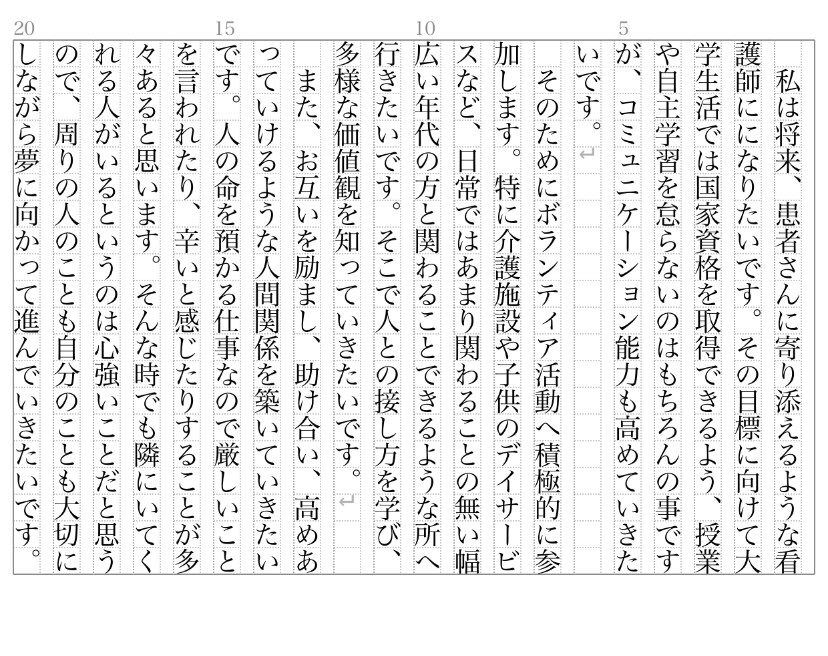 私は将来、患者さんに寄り添えるような看
護師にになりたいです。その目標に向けて大
学生活では国家資格を取得できるよう、授業
や自主学習を怠らないのはもちろんの事です
が、コミュニケーション能力も高めていきた
いです。↵
　そのためにボランティア活動へ積極的に参
加します。特に介護施設や子供のデイサービ
スなど、日常ではあまり関わることの無い幅
広い年代の方と関わることできるような所へ
行きたいです。そこで人との接し方を学び、
多様な価値観を知っていきたいです。↵
　また、お互いを励まし、助け合い、高めあ
っていけるような人間関係を築いていきたい
です。人の命を預かる仕事なので厳しいこと
を言われたり、辛いと感じたりすることが多
々あると思います。そんな時でも隣にいてく
れる人がいるというのは心強いことだと思う
ので、周りの人のことも自分のことも大切に
しながら夢に向かって進んでいきたいです。
5
10
15
20